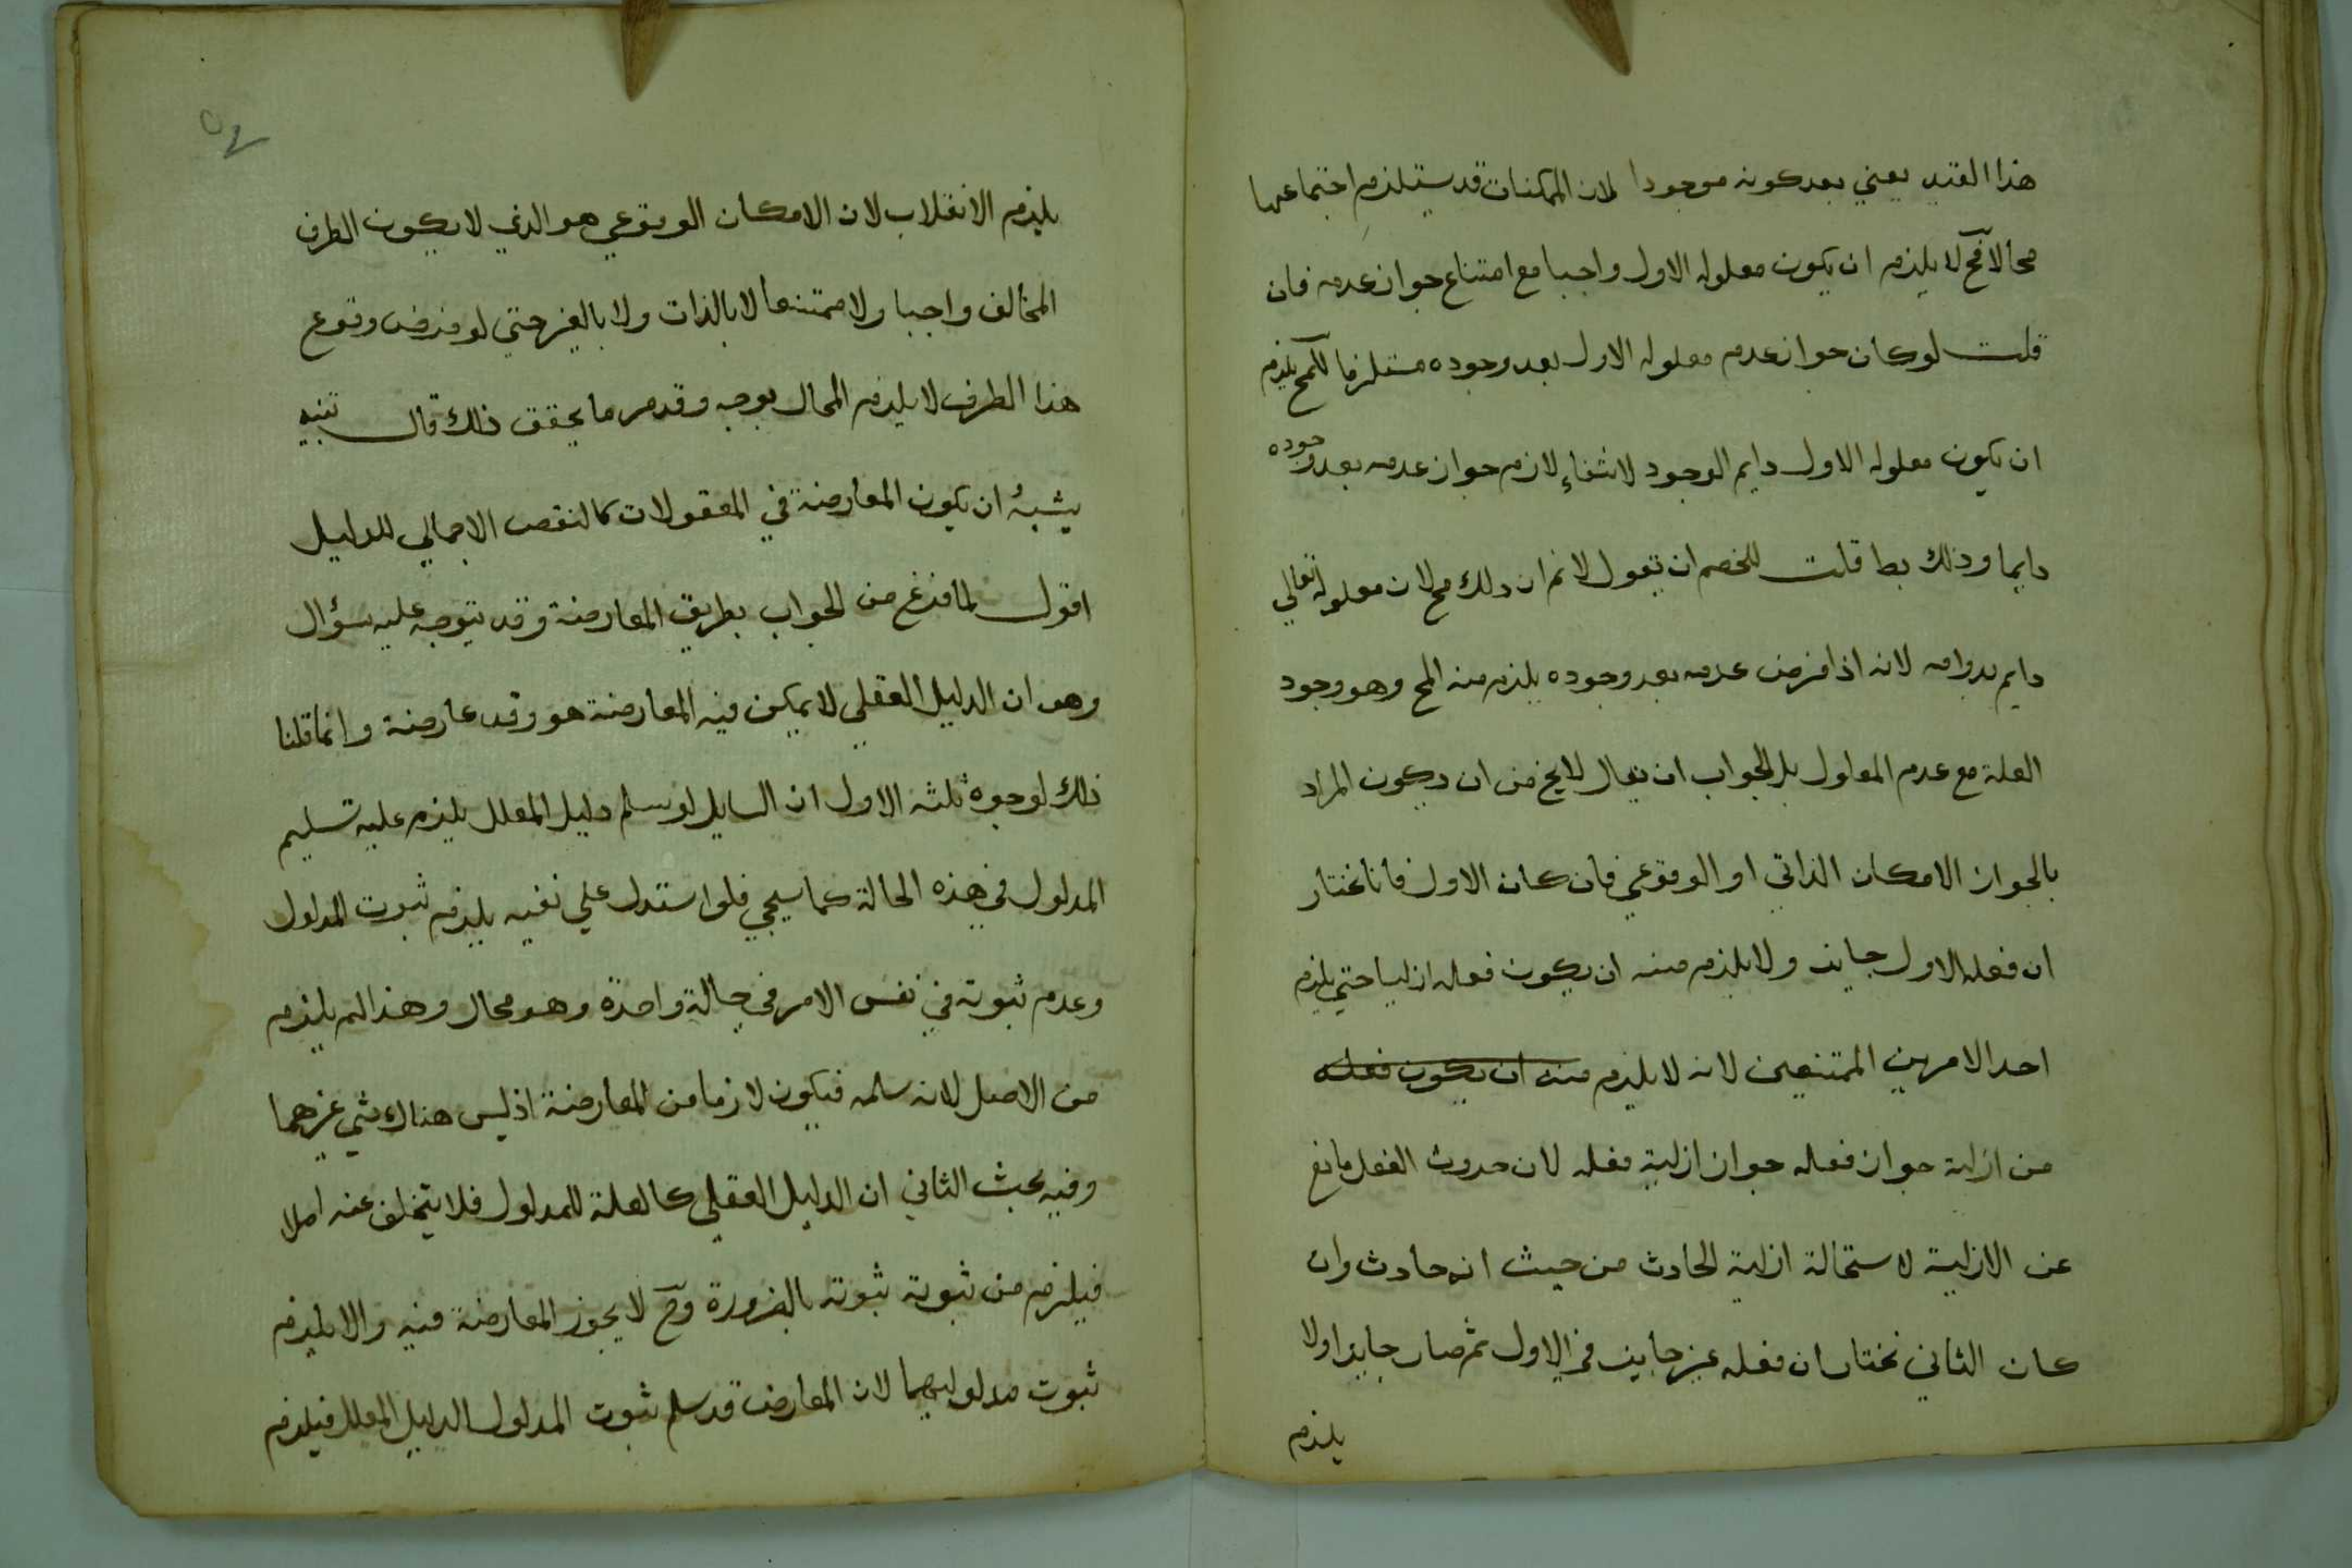 هذا القيد يعني بعد كونه موجودا لان الممكنات قد يستلزم اجتماعها
محالا فح لا يلزم ان يكون معلوله الاول واجبا مع امتناع جواز عدمه فان
قلت لو كان جواز عدم معلوله الاول بعد وجوده مستلزما للمح يلزم
ان يكون معلوله الاول دايم الوجود لانتفاء لازم جواز عدمه بعد وجوده
دايما وذلك بط قلت للخصم ان يقول لانم ان ذلك مح لان معلوله تعالي
دايم بدوامه لانه اذا فرض عدمه بعد وجوده يلزم منه المح وهو وجود
العلة مع عدم المعلول بل الجواب ان يقال لايخ من ان يكون المراد
بالجواز الامكان الذاتي او الوقوعي فان كان الاول فانا نختار
ان فعله الاول جايز ولا يلزم منه ان يكون فعله ازليا حتي يلزم
احد الامرين الممتنعين لانه لا يلزم منه ان يكون فعله
من ازلية جواز فعله جواز ازلية فعله لان حدوث الفعل مانع
عن الازلية لاستحالة ازلية الحادث من حيث انه حادث وان
كان الثاني نختار ان فعله غير جايز في الاول ثم صار جايزا ولا
يلزم
يلزم الانقلاب لان الامكان الوقوعي هو الذي لا يكون الطرف
المخالف واجبا ولا ممتنعا لا بالذات ولا بالغير حتي لو فرض وقوع
هذا الطرف لا يلزم المحال بوجه وقد مر ما يحقق ذلك قال تنبيه
يشبه ان يكون المعارضة في المعقولات كالنقض الاجمالي للدليل
اقول لما فرغ من الجواب بطريق المعارضة وقد يتوجه عليه سؤال
وهو ان الدليل العقلي لا يمكن فيه المعارضة هو وقد عارضة وانما قلنا
ذلك لوجوه ثلثه الاول ان السايل لو سلم دليل المعلل يلزم عليه تسليم
المدلول في هذه الحالة كما سيجي فلو استدل علي نفيه يلزم ثبوت المدلول
وعدم ثبوته في نفس الامر في حالة واحدة وهو محال وهذا لم يلزم
من الاصل لانه سلمه فيكون لازما من المعارضة اذ ليس هناك شي غيرهما
وفيه بحث الثاني ان الدليل العقلي كالعلة للمدلول فلا يتخلف عنه اصلا
فيلزم من ثبوته ثبوته بالضرورة وح لا يجوز المعارضة فيه والا يلزم
ثبوت مدلوليهما لان المعارض قد سلم ثبوت المدلول الدليل المعلل فيلزم